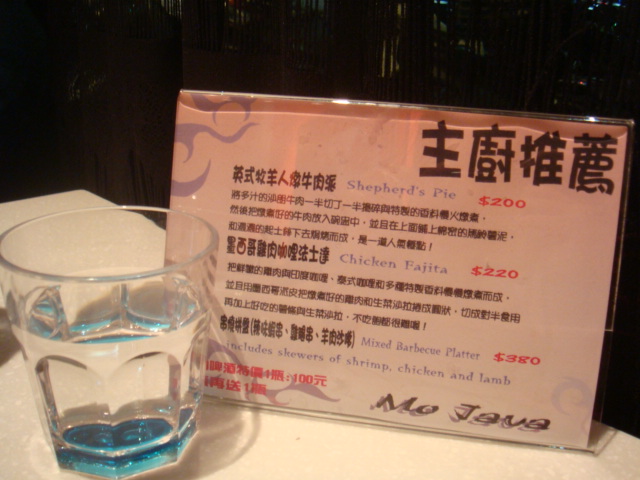 主廚推薦
英式牧羊人燉牛肉派 Shepherd's Pie $200
將多汁的沙朗牛肉一半切丁一半攪碎與特製的香料慢火燉煮,
然後把燉煮好的牛肉放入碗盅中,並且在上面鋪上綿密的馬鈴薯泥,
和濃濃的起士絲下去焗烤而成,是一道人氣餐點!
墨西哥雞肉咖哩法士達 Chicken Fajita $220
把鮮嫩的雞肉與印度咖哩、泰式咖哩和多種特製香料慢慢燉煮而成,
並且用墨西哥派皮把燉煮好的雞肉和生菜沙拉捲成圓狀,切成對半食用
再加上好吃的薯條與生菜沙拉,不吃飽都很難喔!
串燒拼盤(辣味蝦串、雞肉串、羊肉沙嗲) Mixed Barbecue Platter $380
includes skewers of shrimp, chicken and lamb
啤酒特價1瓶:100元
送1瓶
Mo Java